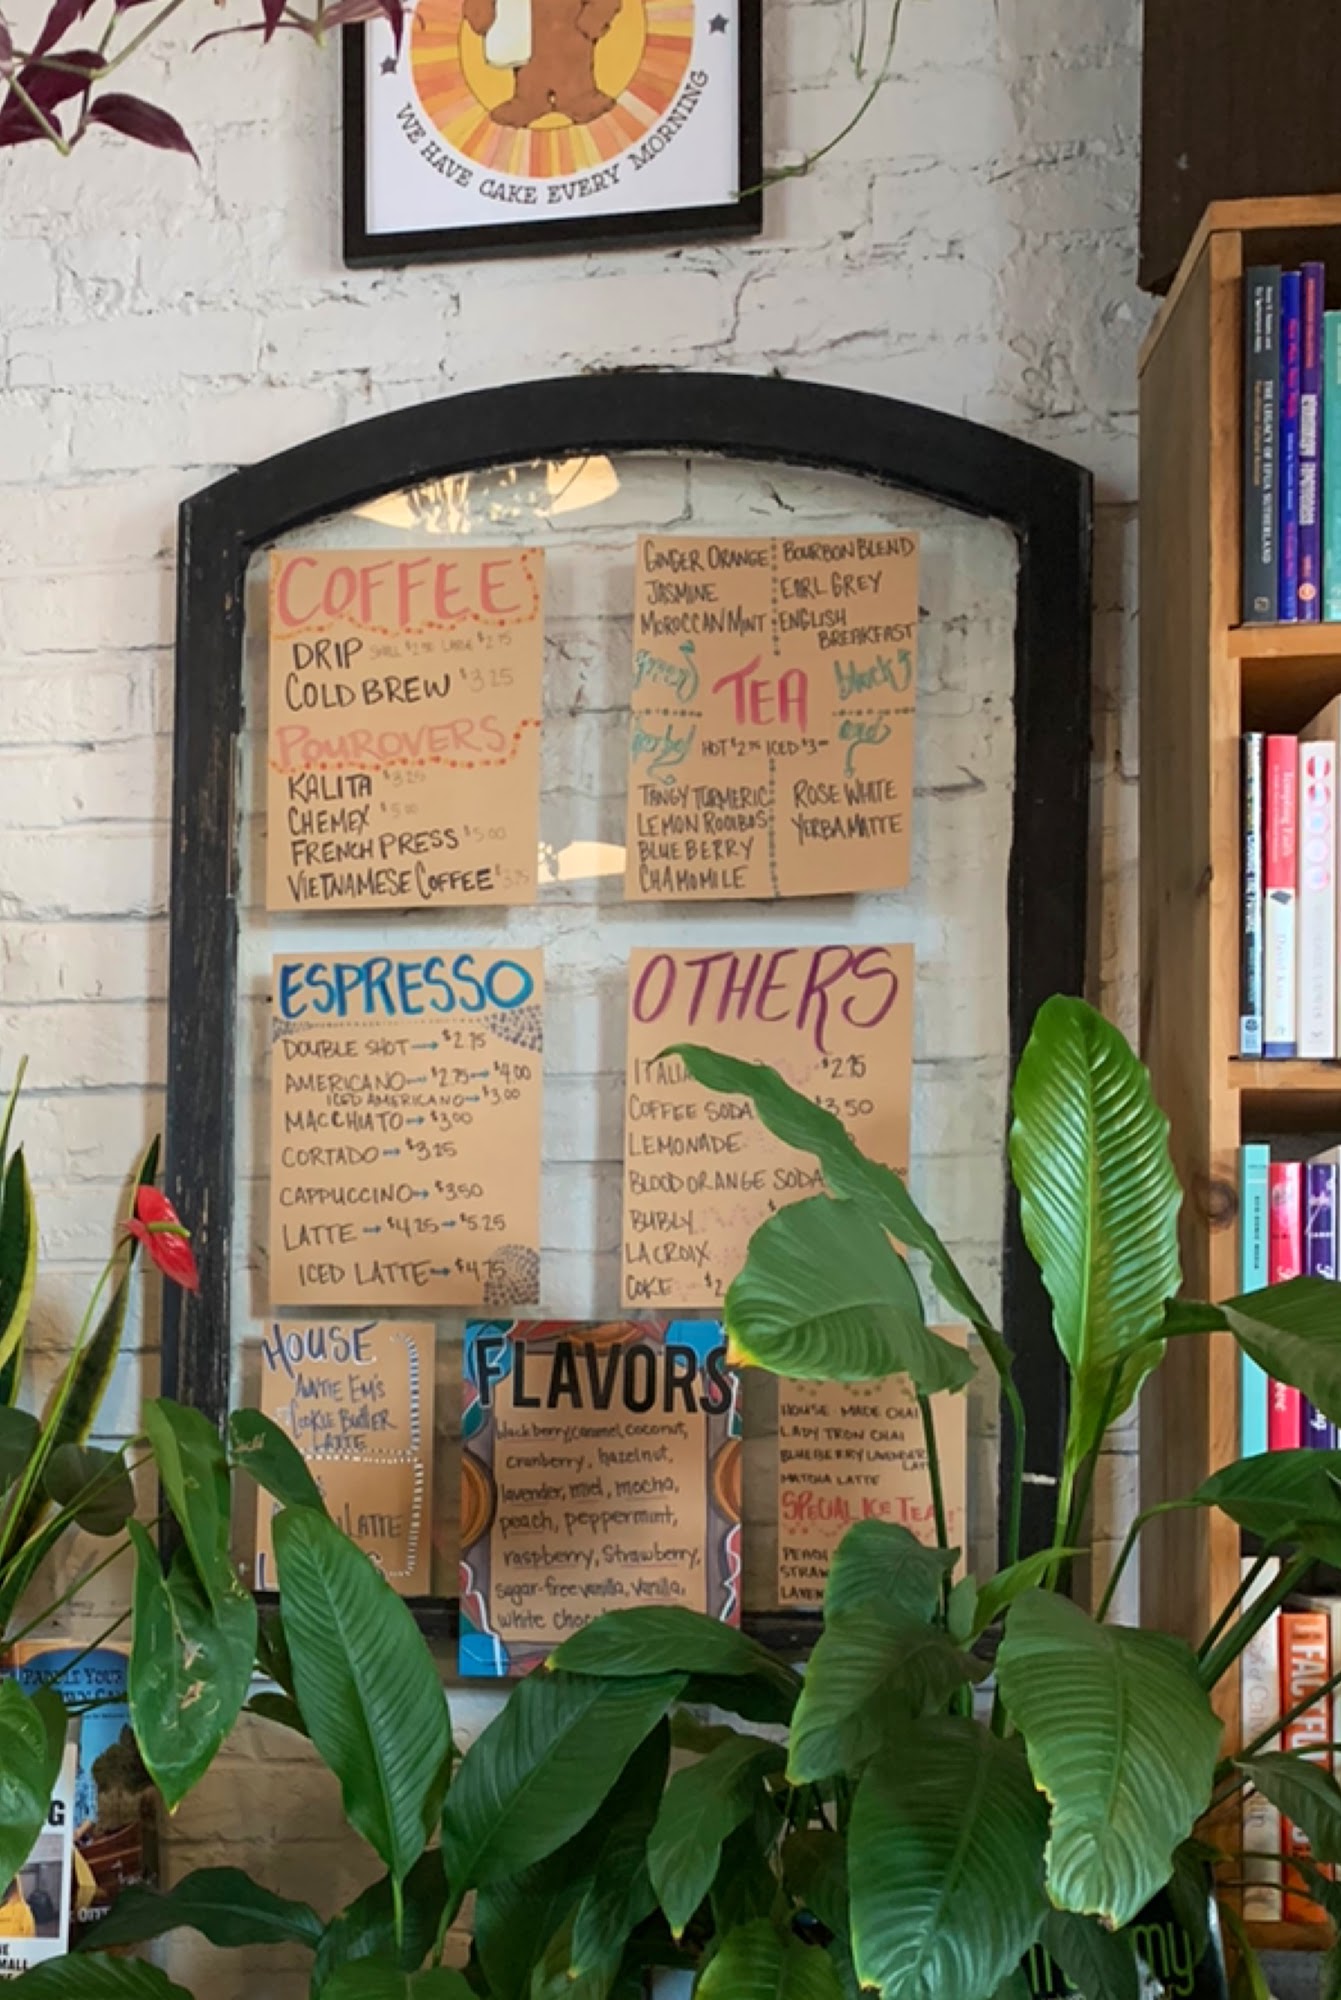 WE HAVE CAKE EVERY MORNING
COFFEE
DRIP SMALL $2.50 LARGE $2.75
COLD BREW $3.25
POUROVERS
KALITA $3.25
CHEMEX $5.00
FRENCH PRESS $5.00
VIETNAMESE COFFEE $3.75
GINGER ORANGE
JASMINE
MOROCCAN MINT
green
BOURBON BLEND
EARL GREY
ENGLISH
BREAKFAST
black
TEA
HOT $2.75 ICED $3.00
herbal
TANGY TURMERIC
LEMON ROOIBOS
BLUEBERRY
CHAMOMILE
ROSE WHITE
YERBA MATTE
ESPRESSO
DOUBLE SHOT → $2.75
AMERICANO → $2.75 → $4.00
ICED AMERICANO → $3.00
MACCHIATO → $3.00
CORTADO → $3.25
CAPPUCCINO → $3.50
LATTE → $4.25 → $5.25
ICED LATTE → $4.75
OTHERS
ITALIA $2.75
COFFEE SODA $3.50
LEMONADE
BLOOD ORANGE SODA
BUBLY
LA CROIX
COKE $2
HOUSE
AUNTIE EM'S
COOKIE BUTTER
LATTE
LATTE
FLAVORS
blackberry, caramel, coconut,
cranberry, hazelnut,
lavender, miel, mocha,
peach, peppermint,
raspberry, Strawberry,
sugar-free vanilla, vanilla,
white choco
HOUSE-MADE CHAI
LADY TRON CHAI
BLUEBERRY LAVENDER
MATCHA LATTE
SPECIAL ICE TEA
PEACH
STRAW
LAVEN
THE LEGACY OF EFUA SUTHERLAND
Tempting Faith
David Kuo
PADDLE YOUR
OWN CA
FACTFU